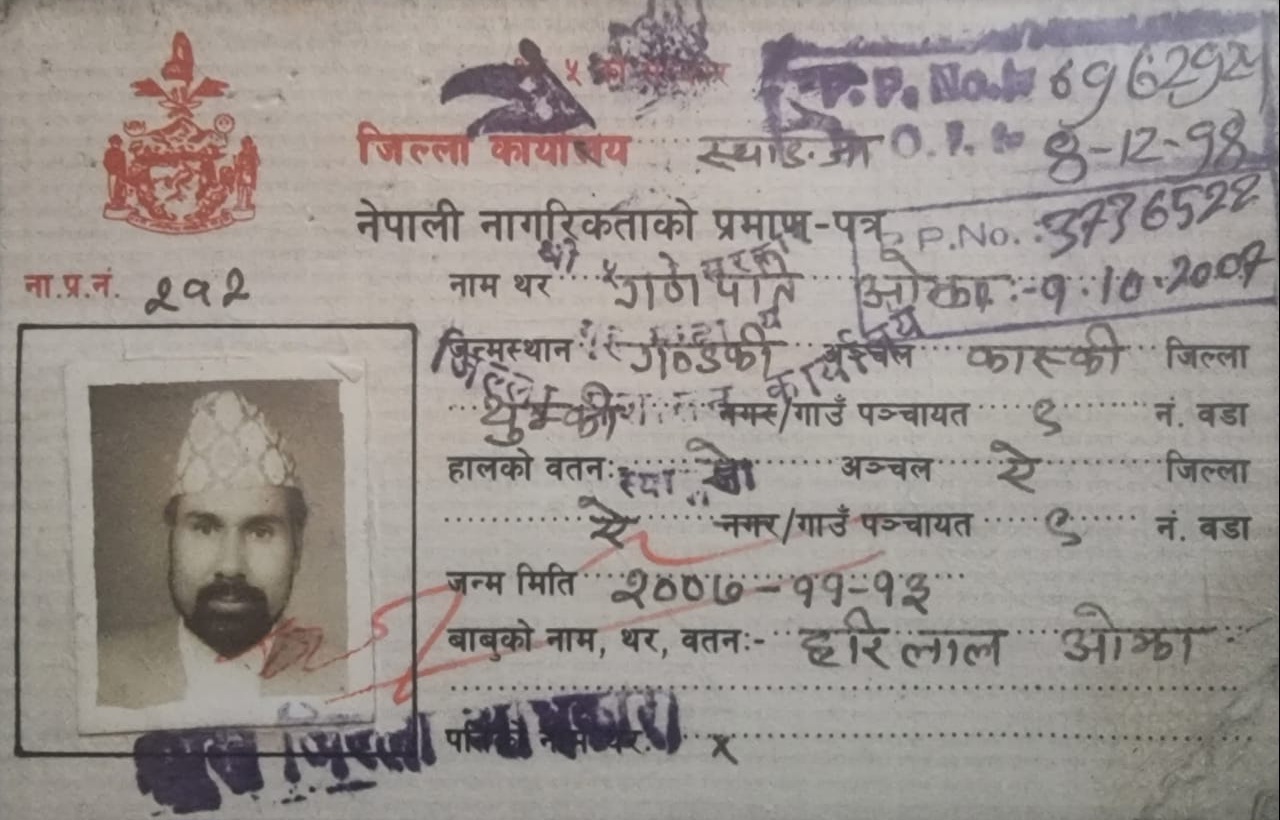 P.P. No. 6962924
जिल्ला कार्यालय स्याङ्जा
8-12-98
नेपाली नागरिकताको प्रमाण-पत्र
P.No. : 3736522
ना.प्र.नं. २१२
नाम थर श्री गणेपति ओझा
:-9.10.2007
जन्मस्थान गण्डकी अञ्चल कास्की जिल्ला
थुम्की नगर/गाउँ पञ्चायत ९ नं. वडा
हालको वतन: ऐ अञ्चल ऐ जिल्ला
ऐ नगर/गाउँ पञ्चायत ९ नं. वडा
जन्म मिति २००७-११-१३
बाबुको नाम, थर, वतन:- हरिलाल ओझा
x